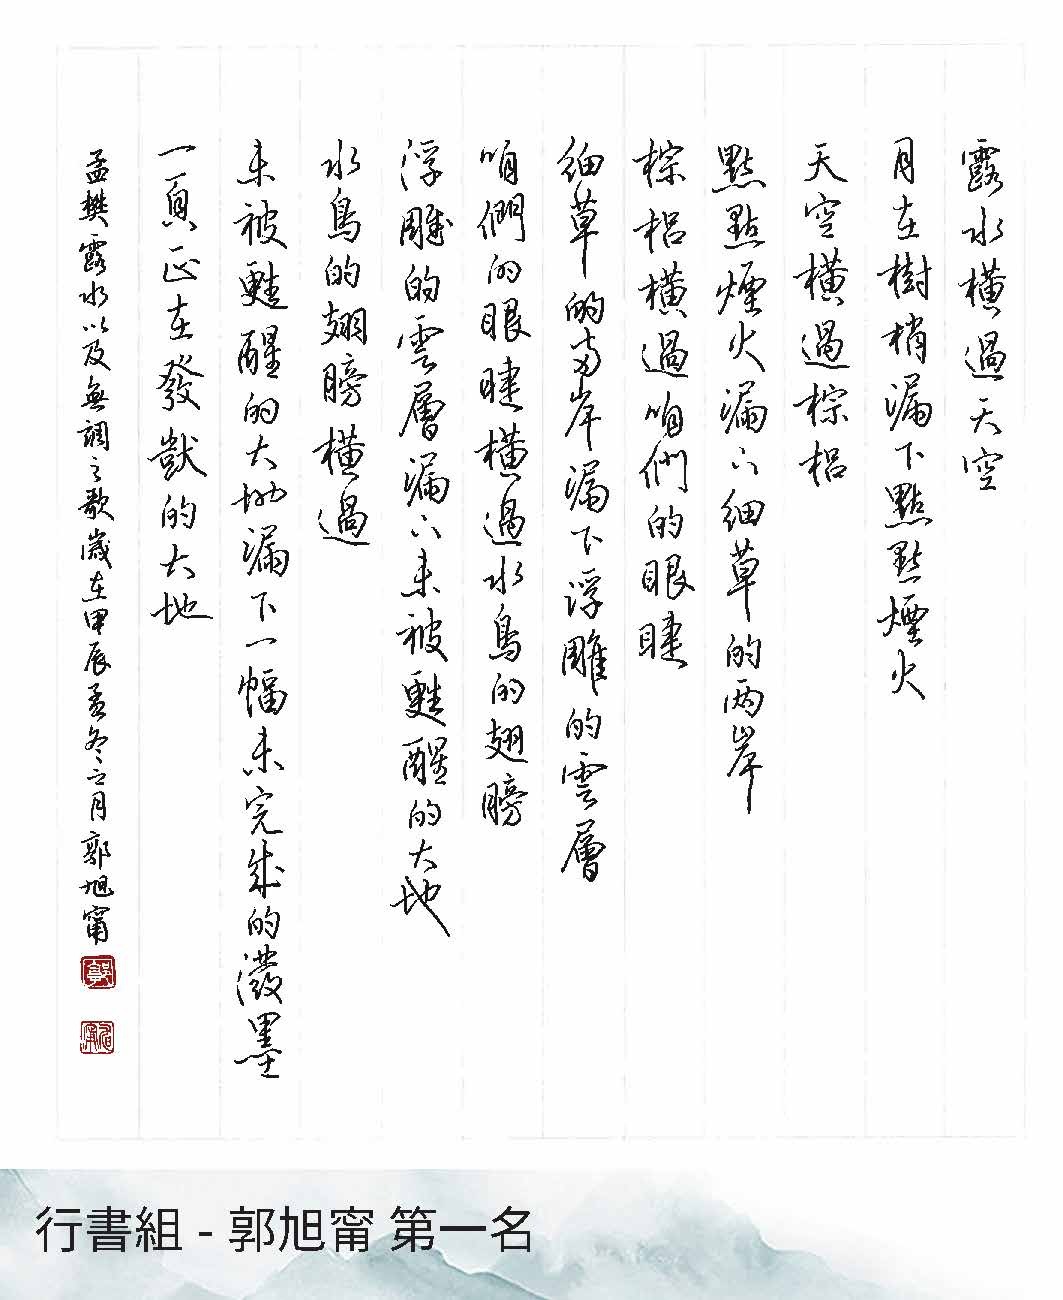 露水橫過天空
月在樹梢漏下點點煙火
天空橫過棕梠
點點煙火漏下細草的两岸
棕梠橫過咱們的眼睫
細草的两岸漏下浮雕的雲層
咱們的眼睫橫過水鳥的翅膀
浮雕的雲層漏下未被甦醒的大地
水鳥的翅膀橫過
未被甦醒的大地漏下一幅未完成的潑墨
一頁正在發獃的大地
孟樊露水以及無調之歌歲在甲辰孟冬之月郭旭甯
行書組 - 郭旭甯 第一名